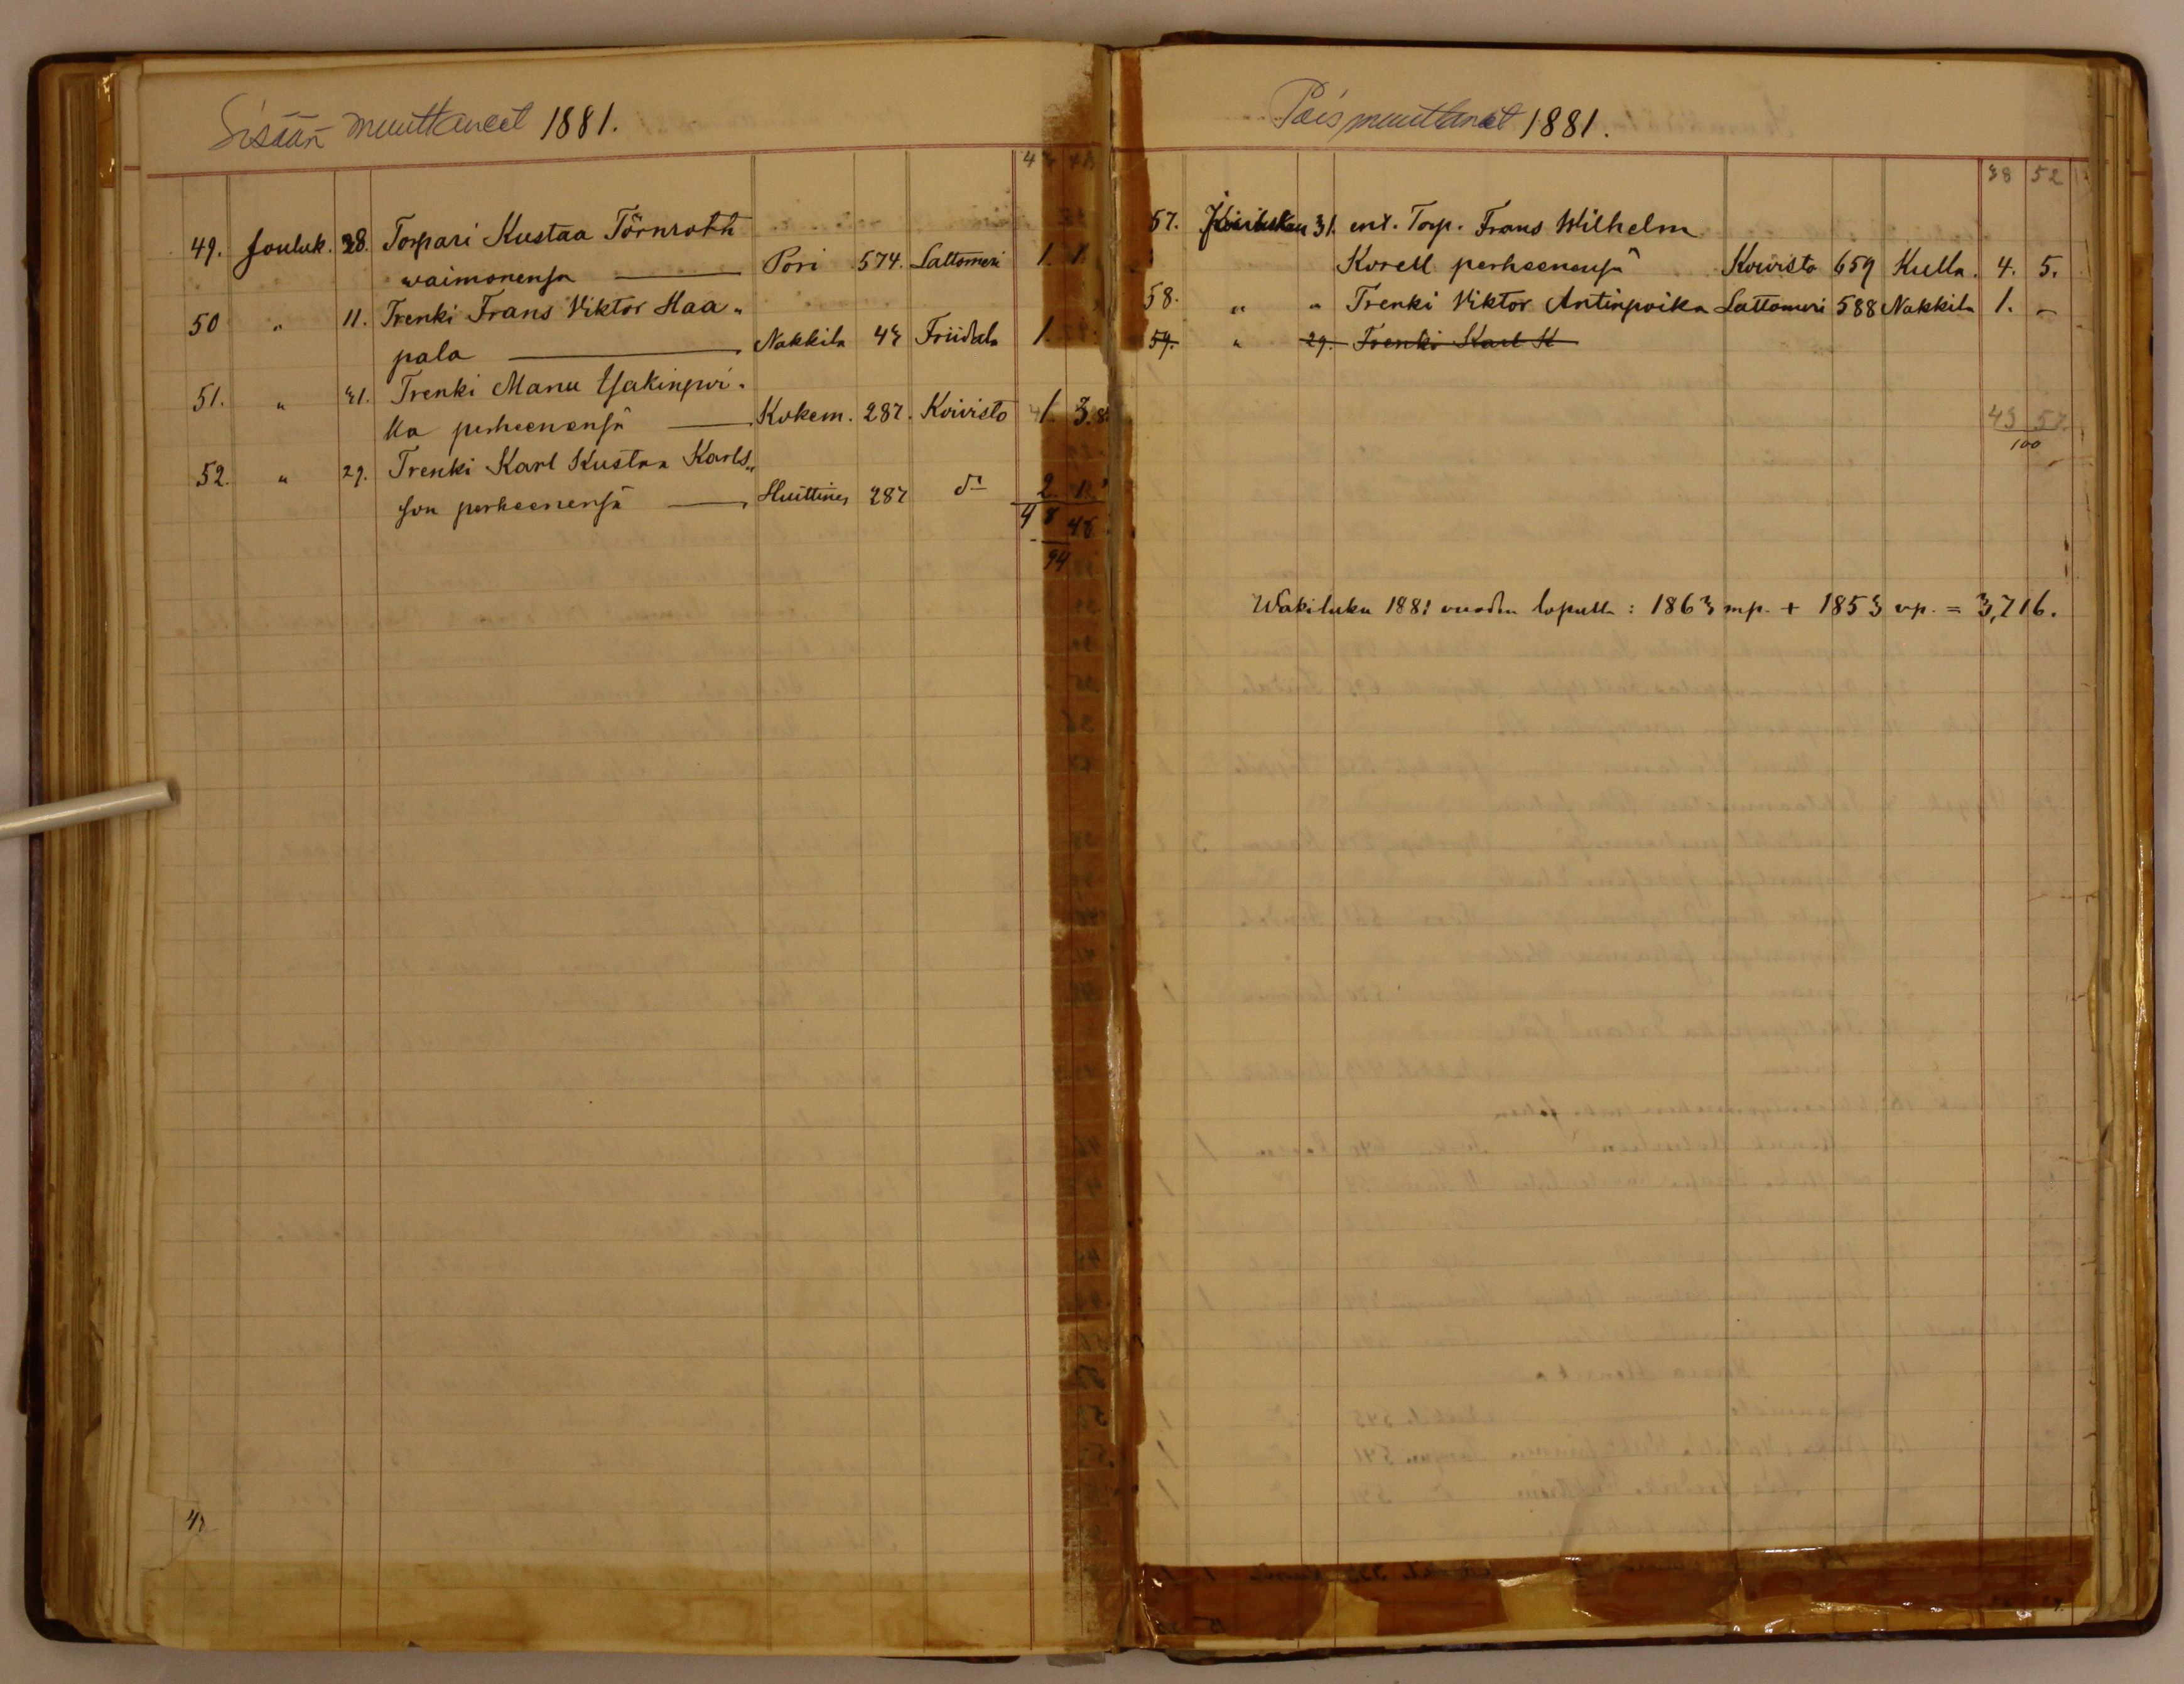 Sisään muuttaneet 1881.
49. Jouluk. 28. Torpari Kustaa Törnroth
waimonensa — Pori 574. Lattomeri 1. 1
50 " 11. Trenki Frans Viktor Haa„
pala — Nakkila 43 Friidala 1.
51. " 31. Trenki Manu Isakinpoi„
ka perheenensä — Kokem. 287. Koivisto 1. 3.
52. " 29. Trenki Karl Kustaa Karls„
son perheenensä — Huittinen 287 do 2. 1.
48 46
94
47
Pois muuttaneet 1881.
38 52
57. 31. ent. Torp. Frans Wilhelm
Korell perheenensä Koivisto 659 Kulla. 4. 5.
58. " " Trenki Viktor Antinpoika Lattomeri 588 Nakkila 1. -
59. " 29. Trenki Karl K
43 57
100
Wäkiluku 1881 vuoden lopulla : 1863 mp. + 1853 vp. = 3,716.